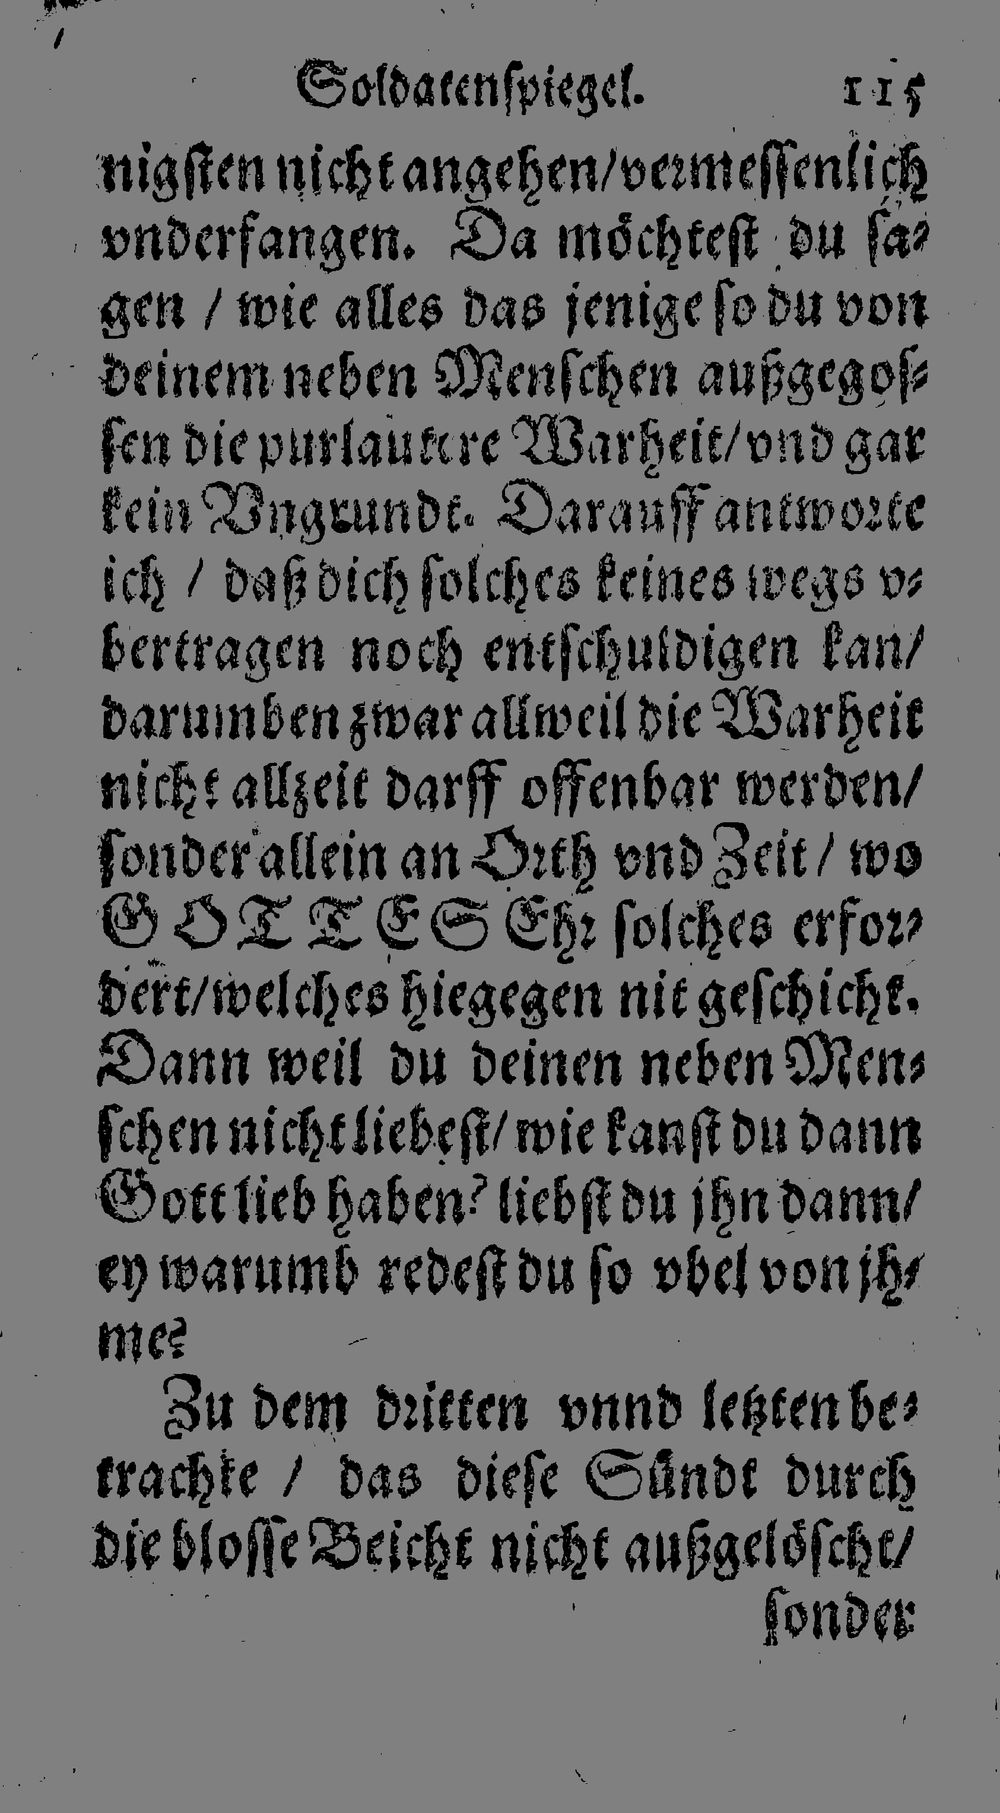 Soldatenſpiegel. 115
nigſten nicht angehen/vermeſſenlich
vnderfangen. Da möchteſt du ſa-
gen / wie alles das jenige ſo du von
deinem neben Menſchen außgegoſ-
ſen die purlautere Warheit/vnd gar
kein Vngrundt. Darauff antworte
ich / daß dich ſolches keines wegs v-
bertragen noch entſchuldigen kan/
darumben zwar allweil die Warheit
nicht allzeit darff offenbar werden/
ſonder allein an Orth vnd Zeit / wo
GOTTES Ehr ſolches erfor-
dert/welches hiegegen nit geſchicht.
Dann weil du deinen neben Men-
ſchen nicht liebeſt/ wie kanſt du dann
Gott lieb haben? liebſt du jhn dann/
ey warumb redeſt du ſo vbel von jh-
me?
Zu dem dritten vnnd letzten be-
trachte / das dieſe Sündt durch
die bloſſe Beicht nicht außgelöſcht/
ſonder